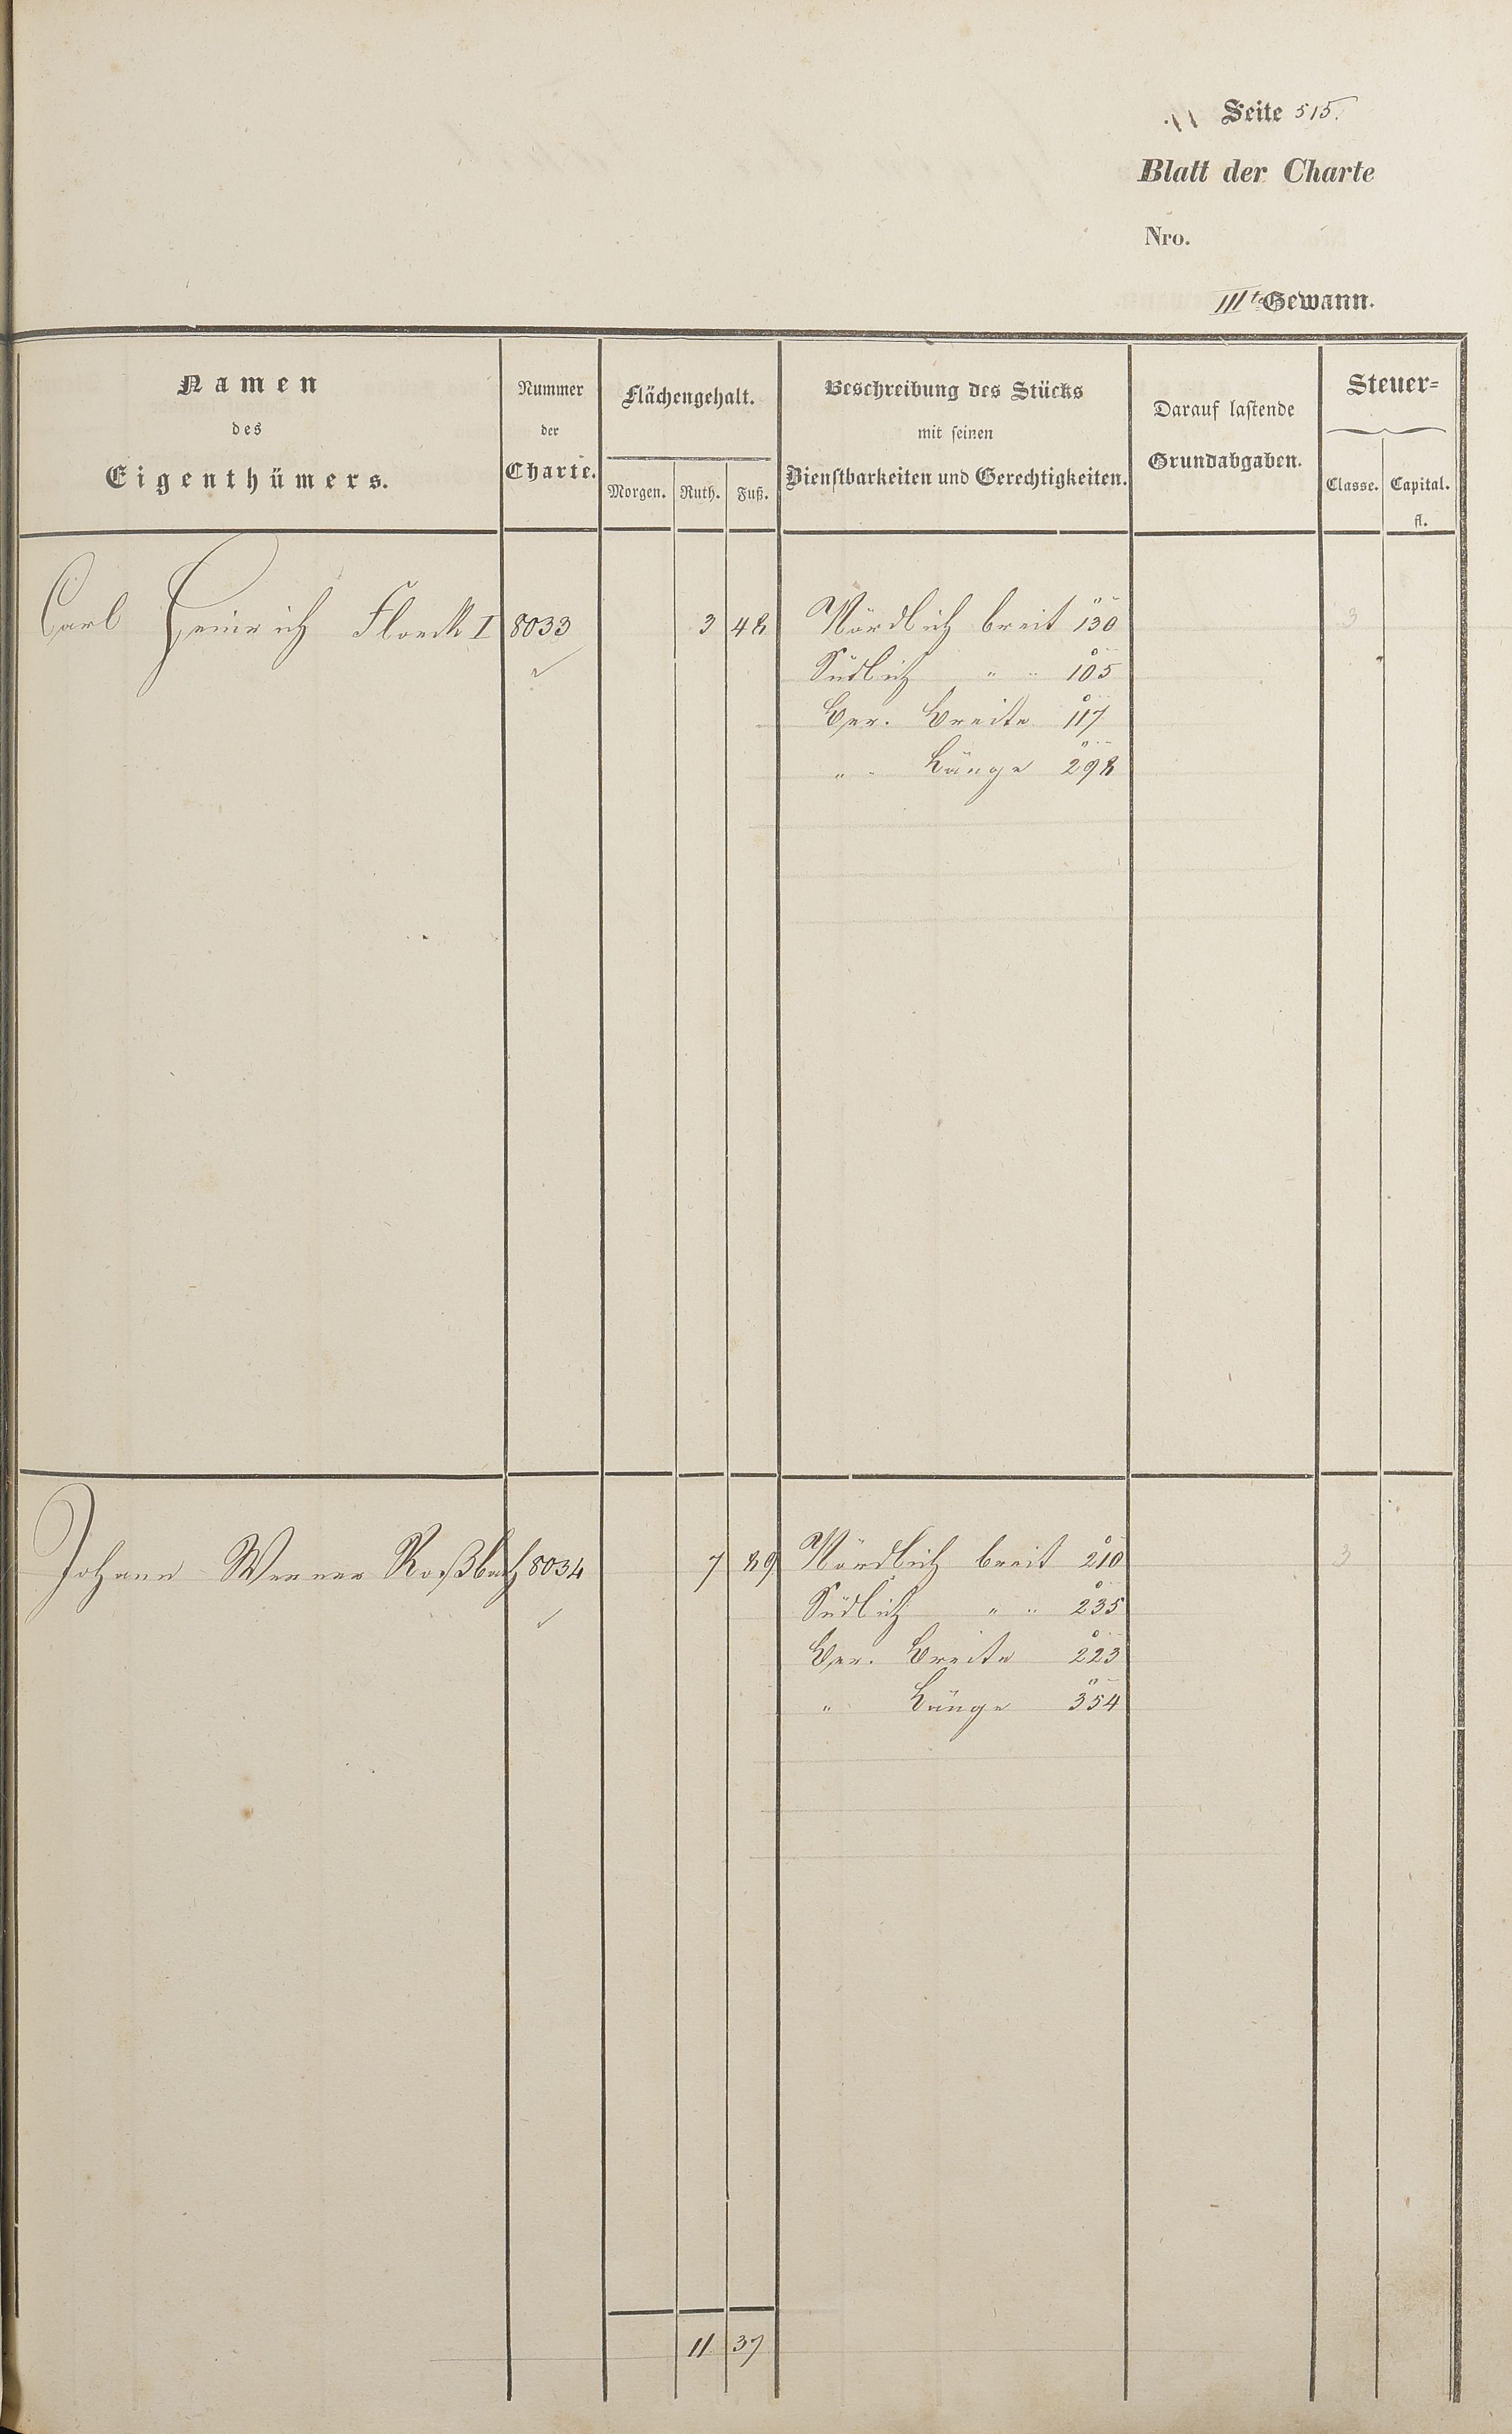 Seite 515.
Blatt der Charte
Nro.
IIIte Gewann.
Namen
des
Eigenthümers.
Nummer
der
Charte.
Flächengehalt.
Morgen. Ruth. Fuß.
Beschreibung des Stücks
mit seinen
Dienstbarkeiten und Gerechtigkeiten.
Darauf lastende
Grundabgaben.
Steuer=
Classe. Capital.
fl.
Carl Heinrich Floeck I 8033 3 48 Nördlich breit 130 3
Südlich " " 105
Ger. Breite 117
" " Länge 298
Johann Werner Roßbach 8034 7 89 Nördlich breit 210 3
Südlich " " 235
Ger. Breite 223
" Länge 354
11 37